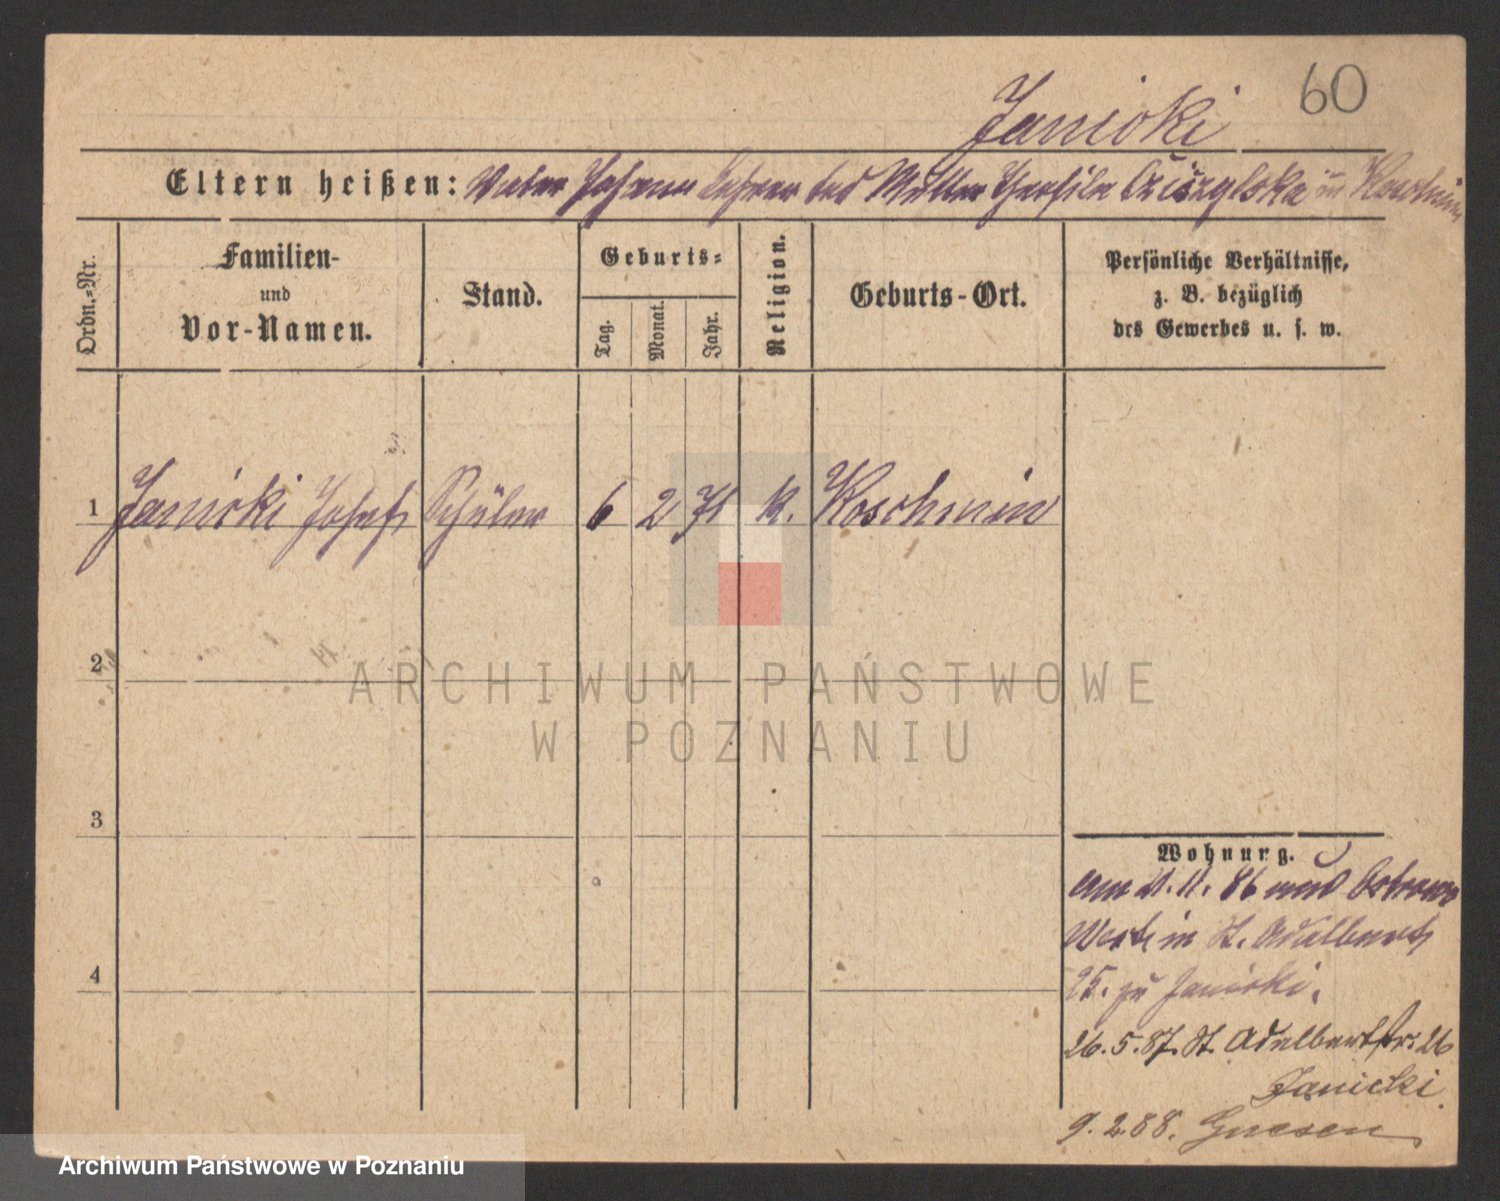 60
Janicki
Eltern heißen: Vater Johann Lehrer tod Mutter in Koschmin
Ordn.-Nr.
Familien-
und
Vor-Namen.
Stand.
Geburts-
Tag.
Monat.
Jahr.
Religion.
Geburts-Ort.
Persönliche Verhältnisse,
z. B. bezüglich
des Gewerbes u. s. w.
1 Janicki Josef Schüler 6 2 71 k. Koschmin
2
3
4
Wohnung.
am 21. 11. 86 aus Ostrowo
in St. Adalbert
25. zu Janicki.
26. 5. 87. St. Adalbertstr. 26
Janicki
9. 2. 88. Gnesen
ARCHIWUM PAŃSTWOWE
W POZNANIU
Archiwum Państwowe w Poznaniu